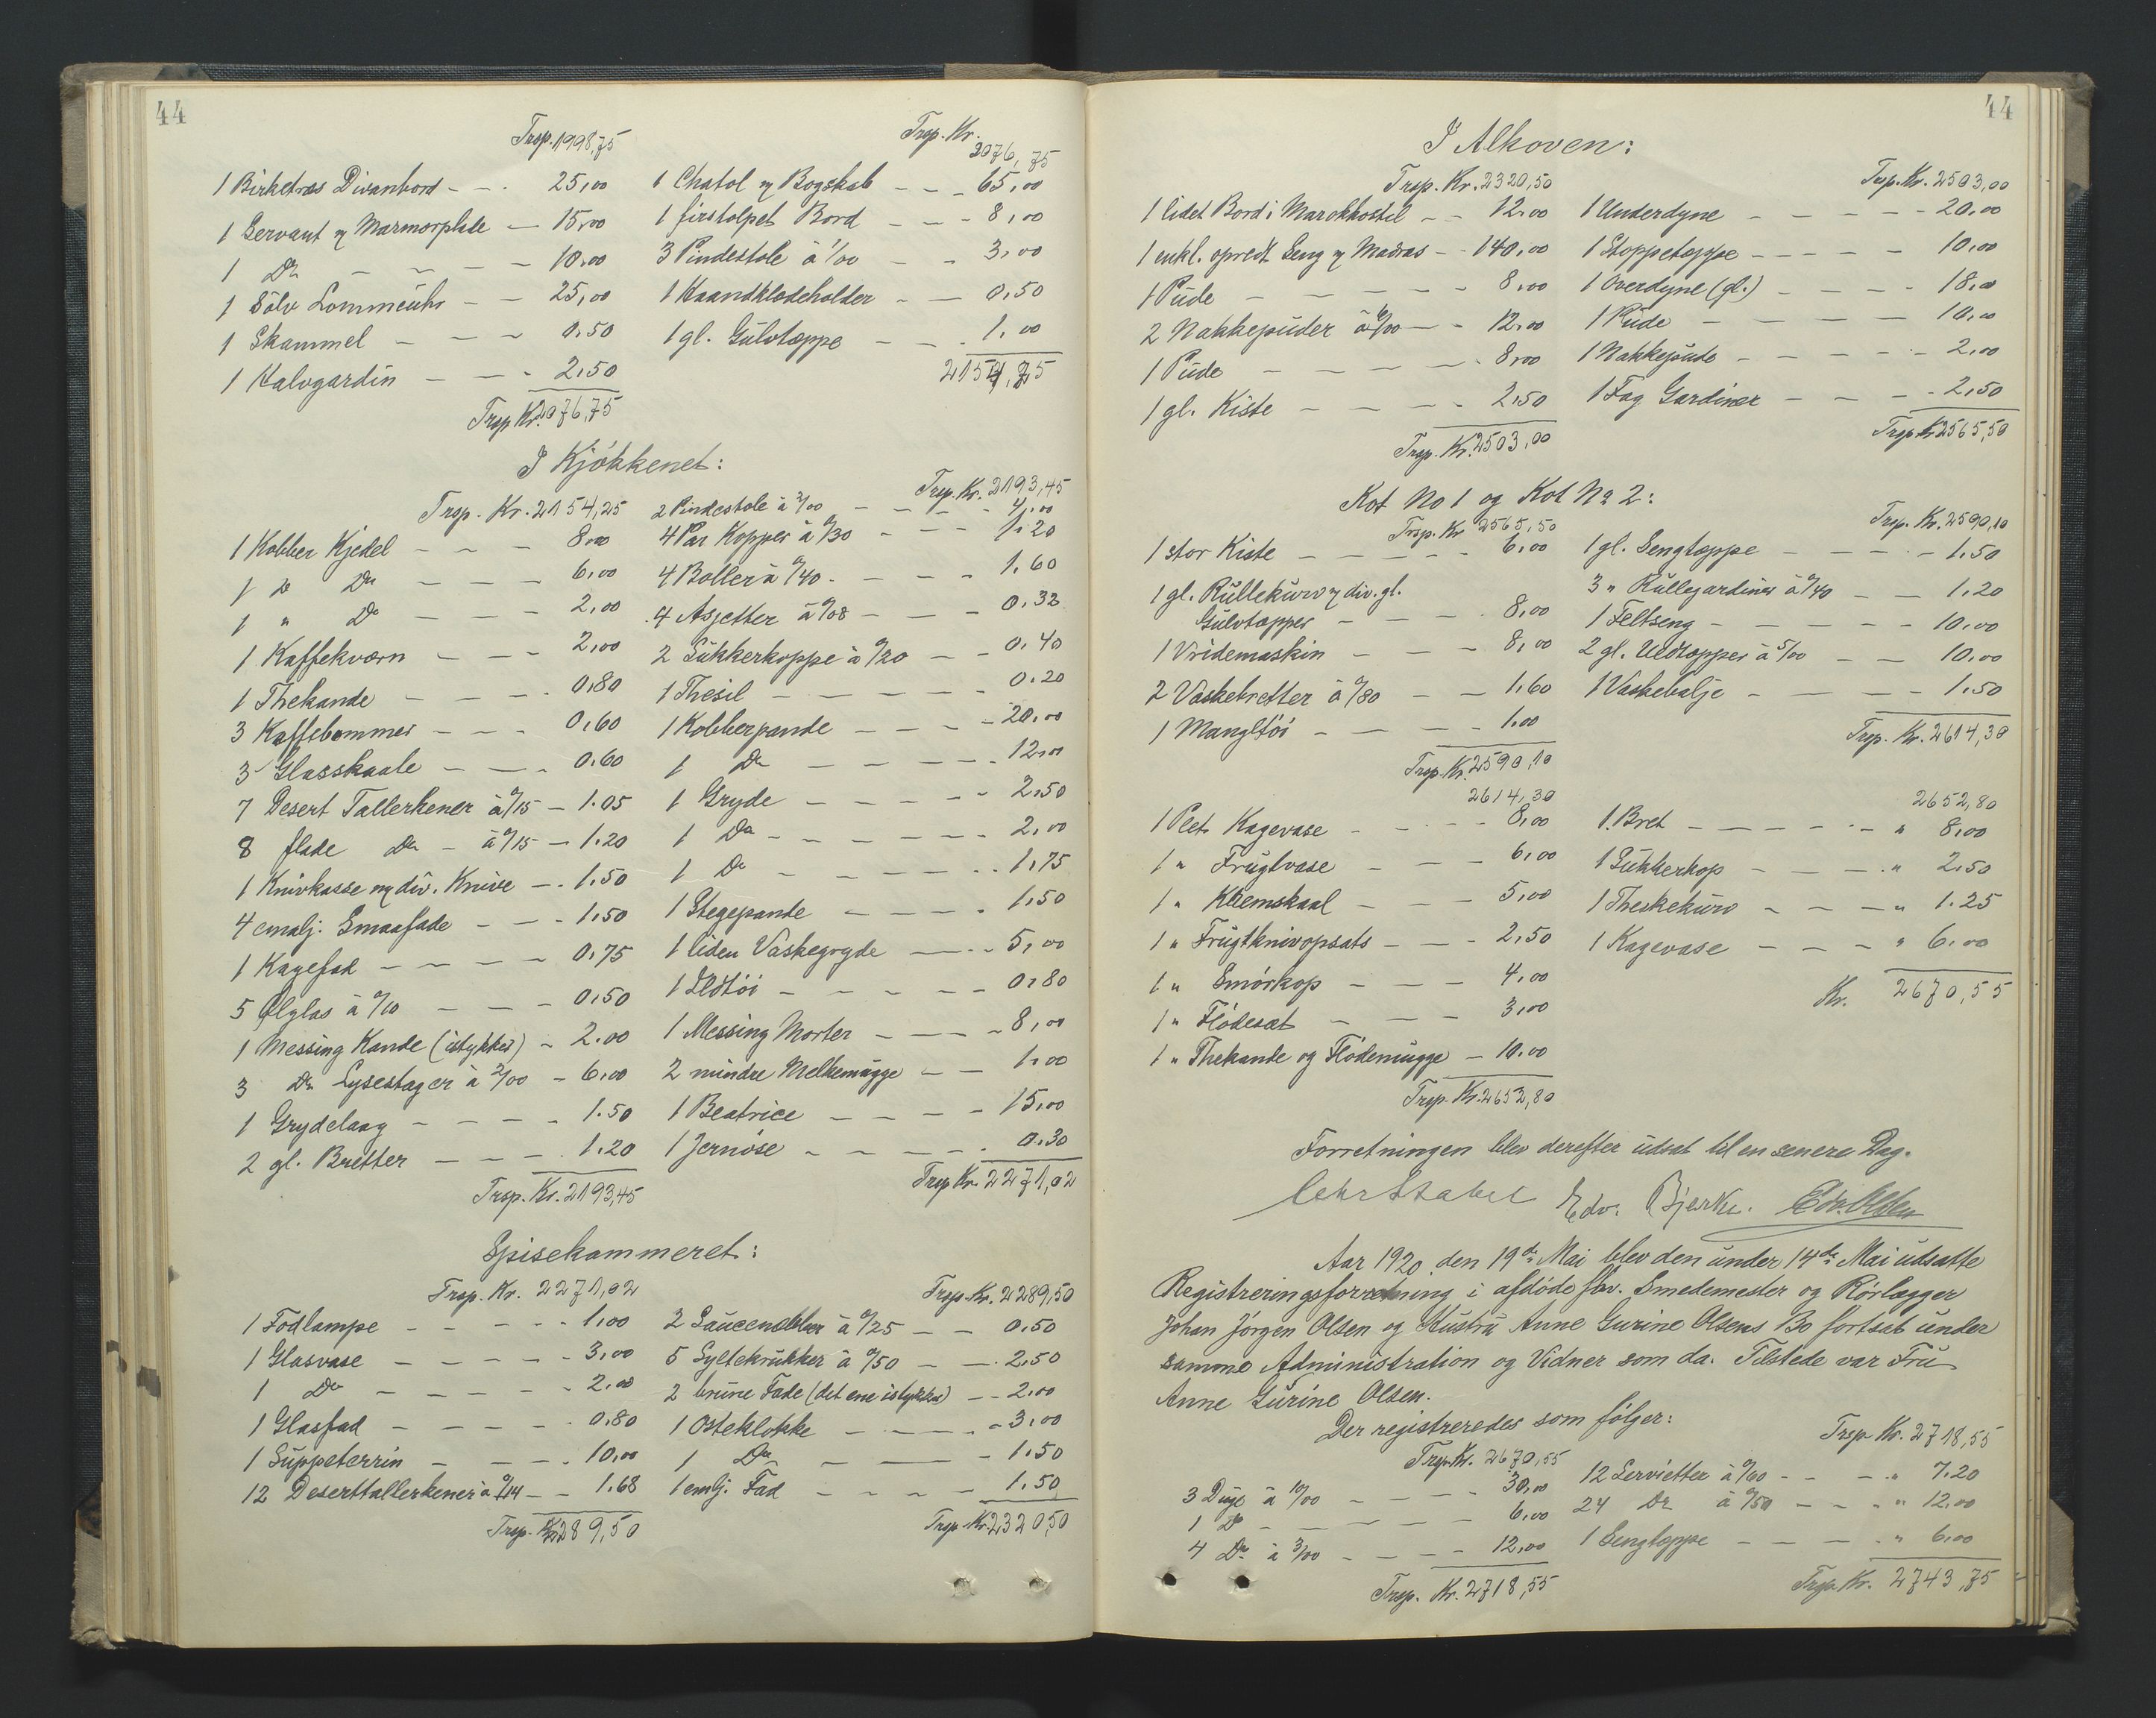 44
Trsp. 1998,75
1 Birketræs Divanbord - - . 25,00
1 Servant m Marmorplade - 15,00
1 Do - - - - 10,00
1 Sölv Lommeuhr - - 25,00
1 Skammel - - - 0,50
1 Halvgardin - - - 2,50
Trsp Kr. 2076,75
Trsp. Kr.
2076,75
1 Chatol m Bogskab - - - 65,00
1 firstolpet Bord - - - 8,00
3 Pindestole à 1/00 - - 3,00
1 Haandklædeholder - - 0,50
1 gl. Gulvtæppe - - . 1,00
2154,25
I Kjökkenet:
Trsp. Kr. 2154,25
1 Kobber Kjedel - - - 8,00
1 Do Do - - - 6,00
1 " Do - - - 2,00
1 Kaffekværn - - - 2,00
1 Thekande - - - - 0,80
3 Kaffebommer - - - 0,60
3 Glasskaale - - - 0,60
7 Desert Tallerkener à 0/15 - 1.05
8 flade Do - à 0/15 - 1.20
1 Knivkasse m div. Knive - . 1.50
4 emalj. Smaafade - - - 1,50
1 Kagefad - - - - - 0.75
5 Ølglas à 0/10 - - - 0,50
1 Messing Kande (istykker) - 2.00
3 Do Lysestager à 2/00 - 6,00
1 Grydelaag - - - - - 1.50
2 gl. Bretter - - - . 1.20
Trsp. Kr. 2193,45
Trsp. Kr. 2193,45
2 Pindestole à 2/00 - - - - 4,00
4 Par Kopper à 0/30 - - - 1.20
4 Boller à 0/40 - - - - 1.60
4 Asjetter à 0/08 - - - 0.32
2 Sukkerkoppe à 0/20 - - 0.40
1 Thesil - - - - - - 0.20
1 Kobberpande - - - - 20.00
1 Do - - - - - . 12,00
1 Gryde - - - - - 2,50
1 Do - - - - - - 2,00
1 Do - - - - - . 1,75
1 Stegepande - - - - . 1,50
1 liden Vaskegryde - - - 5,00
1 Ildtöi - - - - - - 0,80
1 Messing Morter - - - - 8,00
2 mindre Melkemugge - - 1,00
1 Beatrice - - - - 15,00
1 Jernöse - - - - - . 0.30
Trsp Kr. 2271,02
Spisekammeret:
Trsp. Kr. 2271,02
1 Fodlampe - - - - - 1,00
1 Glasvase - - - - - 3,00
1 Do - - - - - 2,00
1 Glasfad - - - - . 0.80
1 Suppeterrin - - - . 10,00
12 Deserttallerkener à 0/14 - - 1.68
Trsp. Kr. 2289,50
Trsp. Kr. 2289,50
2 Saucenebber à 0/25 - - 0.50
5 Syltekrukker à 0/50 - - . 2.50
2 brune Fade (det ene istykker) - - 2,00
1 Osteklokke - - - - - 3,00
1 Do - - - - 1.50
1 emlj. Fad - - - - 1.50
Trsp. Kr. 2320,50
44
I Alkoven:
Trsp. Kr. 2320,50
1 lidet Bord i Marokkostil - - 12.00
1 enkl. opredt Seng m Madras - - 140,00
1 Pude - - - - - 8,00
2 Nakkepuder à 6/00 - - 12.00
1 Pude - - - - - . 8,00
1 gl. Kiste - - - - . 2,50
Trsp. Kr. 2503,00
Trsp. Kr. 2503,00
1 Underdyne - - - - - 20.00
1 Stoppetæppe - - - - - 10,00
1 Overdyne (gl.) - - - - . 18,00
1 Pude - - - - - 10,00
1 Nakkepude - - - - - 2,00
1 Fag Gardiner - - - - . 2,50
Trsp Kr 2565,50
Kot No 1 og Kot No 2:
Trsp. Kr 2565,50
1 stor Kiste - - - - - 6,00
1 gl. Rullekurv m div. gl.
Gulvtæpper - - - - 8,00
1 Vridemaskin - - - 8,00
2 Vaskebretter à 0/80 - - 1.60
1 Mangltöi - - - - - 1.00
Trsp. Kr. 2590,10
Trsp. Kr. 2590,10
1 gl. Sengtæppe - - - - - 1.50
3 " Rullegardiner à 0/40 - - 1.20
1 Feltseng - - - - - - 10.00
2 gl. Uldtæpper à 5/00 - - 10.00
1 Vaskebalje - - - - - 1.50
Trsp. Kr. 2614,30
2614,30
1 Plet Kagevase - - - - 8,00
1 " Frugtvase - - - 6,00
1 " Klemskaal - - - 5,00
1 " Frugtknivopsats - - - 2,50
1 " Smörkop - - - 4.00
1 " Flödesæt - - - 3,00
1 " Thekande og Flödemugge - 10,00
Trsp. Kr. 2652,80
2652,80
1 Bret - - - - - " 8.00
1 Sukkerkop - - - - . " 2.50
1 Theskekurv - - - - " 1.25
1 Kagevase - - - - " 6,00
Kr. 2670,55
Forretningen blev derefter udsat til en senere Dag.
Edv. Bjerke. Edv. Olsen
Aar 1920 den 19de Mai blev den under 14de Mai udsatte
Registreringsforretning i afdöde fhv. Smedemester og Rörlægger
Johan Jörgen Olsen og Hustru Anne Gurine Olsens Bo fortsat under
samme Administration og Vidner som da. Tilstede var Fru
Anne Gurine Olsen.
Der registreredes som fölger:
Trsp. Kr. 2670,55
3 Duge à 10/00 - - - - 30,00
1 Do - - - - - - 6.00
4 Do à 3/00 - - - - 12,00
Trsp. Kr. 2718,55
Trsp Kr. 2718,55
12 Servietter à 0/60 - - - " 7.20
24 Do à 0/50 - - " " 12,00
1 Sengtæppe - - - - . " 6,00
Trsp. Kr. 2743,75